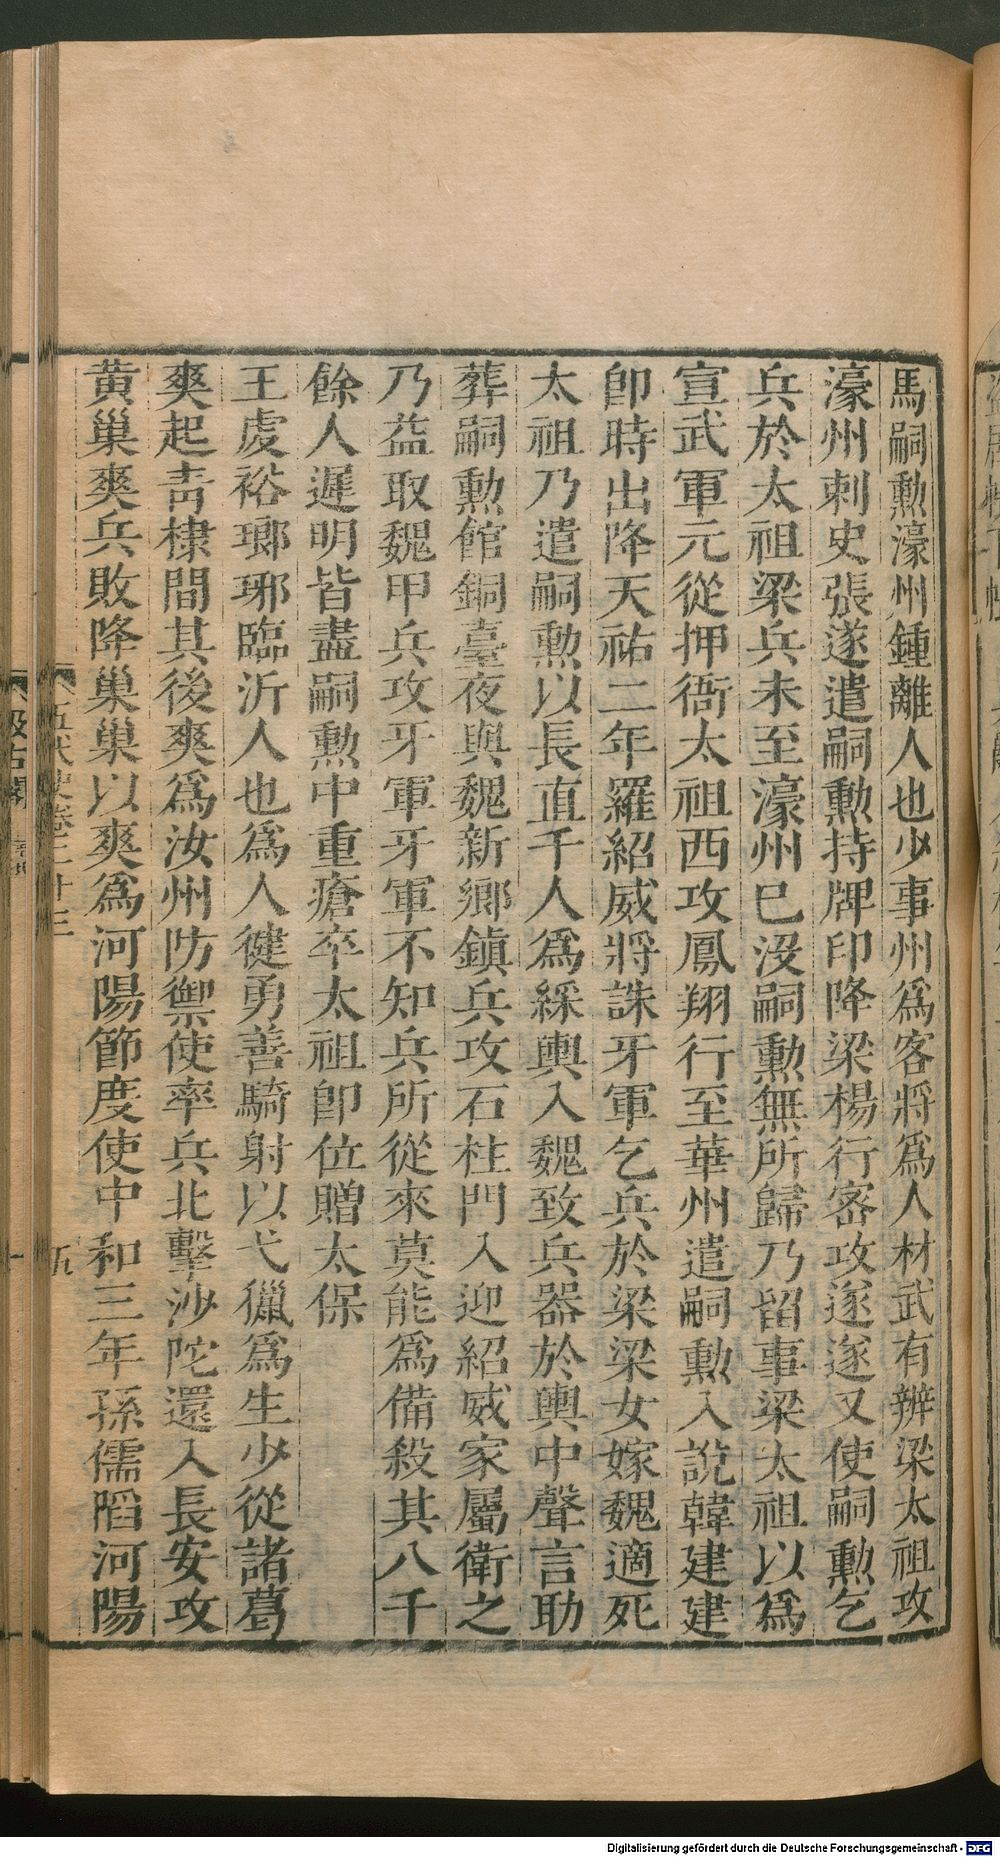 馬嗣勲濠州鍾離人也少事州爲客將爲人材武有辨梁太祖攻
濠州刺史張遂遣嗣勲持牌印降梁楊行密攻遂遂又使嗣勲乞
兵於太祖梁兵未至濠州已没嗣勲無所歸乃留事梁太祖以爲
宣武軍元從押衙太祖西攻鳳翔行至華州遣嗣勲入說韓建建
卽時出降天祐二年羅紹威將誅牙軍乞兵於梁梁女嫁魏適死
太祖乃遣嗣勲以長直千人爲綵輿入魏致兵器於輿中聲言助
葬嗣勲館銅臺夜與魏新鄉鎮兵攻石柱門入迎紹威家屬衛之
乃益取魏甲兵攻牙軍牙軍不知兵所從來莫能爲備殺其八千
餘人遲明皆盡嗣勲中重瘡卒太祖卽位贈太保
王虔裕瑯琊臨沂人也爲人健勇善騎射以弋獵爲生少從諸葛
爽起青棣間其後爽爲汝州防禦使率兵北擊沙陀還入長安攻
黄巢爽兵敗降巢巢以爽爲河陽節度使中和三年孫儒䧟河陽
五代史卷二十三
五
汲古閣
Digitalisierung gefördert durch die Deutsche Forschungsgemeinschaft - DFG